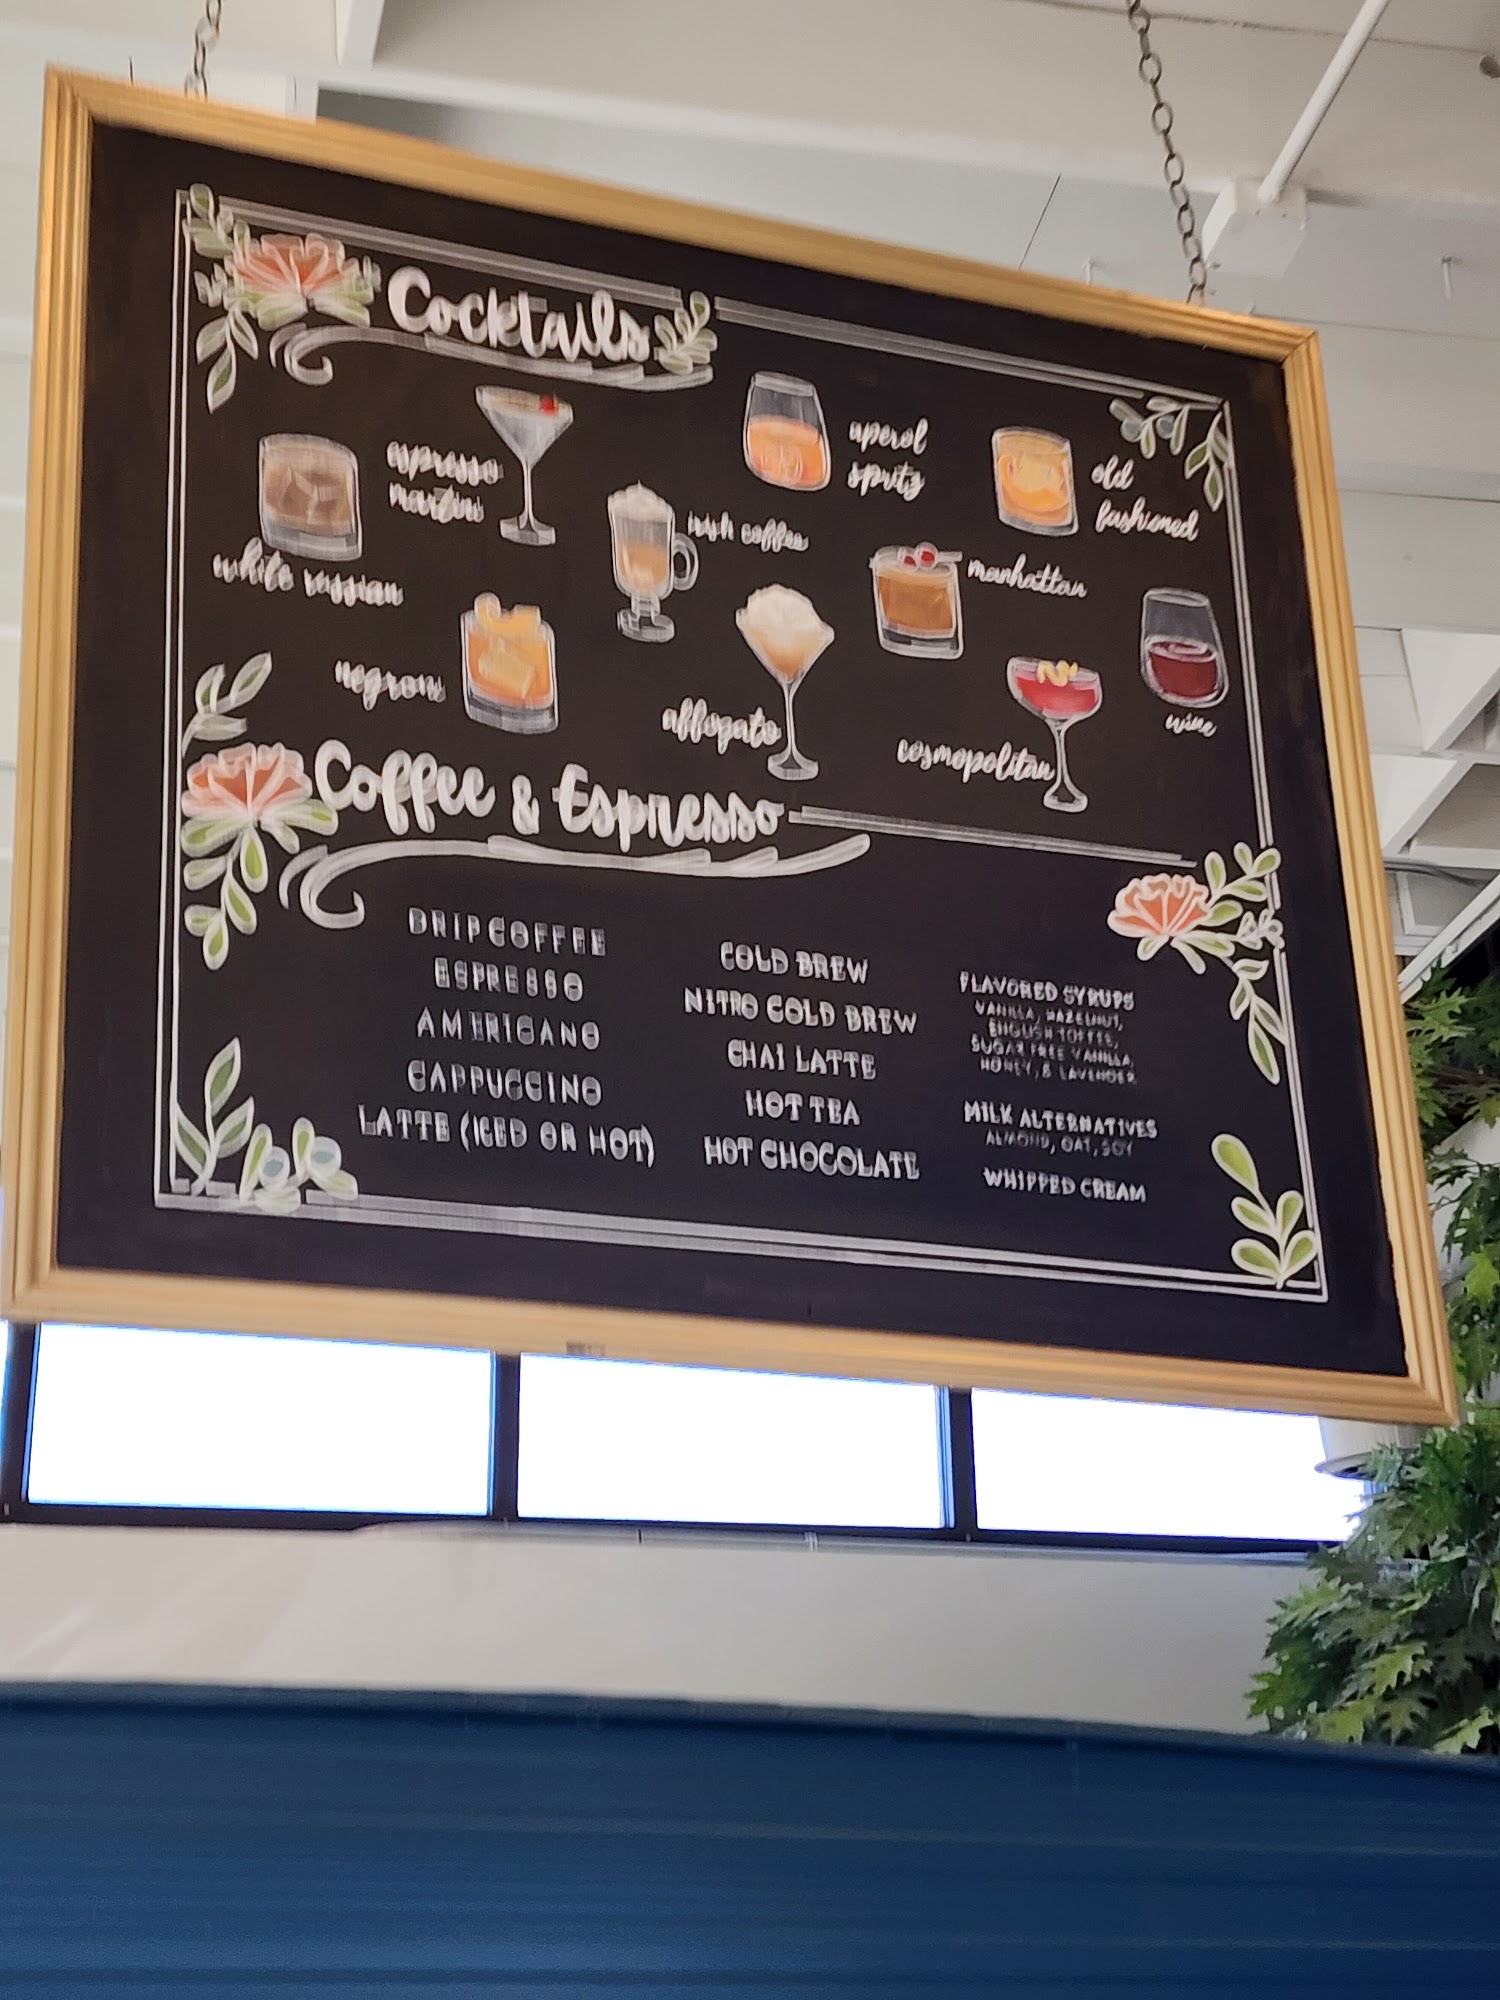 Cocktails
espresso
martini
aperol
spritz
old
fashioned
white russian
irish coffee
manhattan
negroni
affogato
cosmopolitan
wine
Coffee & Espresso
DRIP COFFEE
ESPRESSO
AMERICANO
CAPPUCCINO
LATTE (ICED OR HOT)
COLD BREW
NITRO COLD BREW
CHAI LATTE
HOT TEA
HOT CHOCOLATE
FLAVORED SYRUPS
VANILLA, HAZELNUT,
ENGLISH TOFFEE,
SUGAR FREE VANILLA,
HONEY, & LAVENDER
MILK ALTERNATIVES
ALMOND, OAT, SOY
WHIPPED CREAM